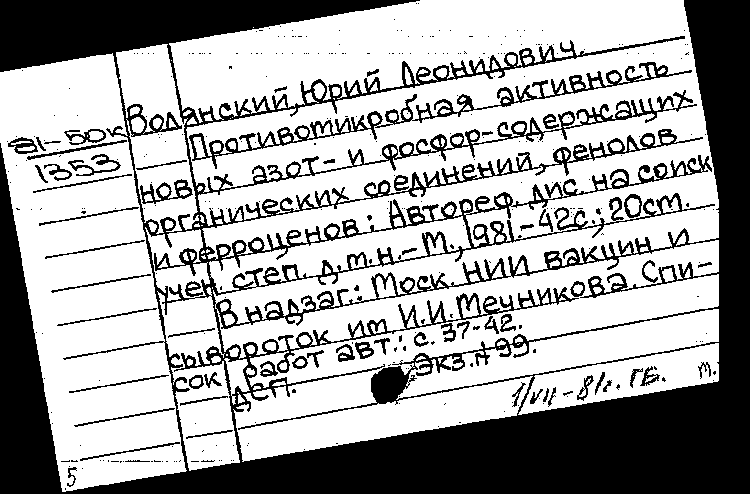 Волянский, Юрий Леонидович.
81-50к
1353
Противомикробная активность
новых азот- и фосфор-содержащих
органических соединений, фенолов
и ферроценов: Автореф. дис. на соиск
учен. степ. д.м.н.-М., 1981.-42с.; 20см.
В надзаг.: Моск. НИИ вакцин и
сывороток им И.И.Мечникова. Спи-
сок работ авт.: с. 37-42.
ДСП. Экз.№99.
1/VII-81г. ГБ. м.
5